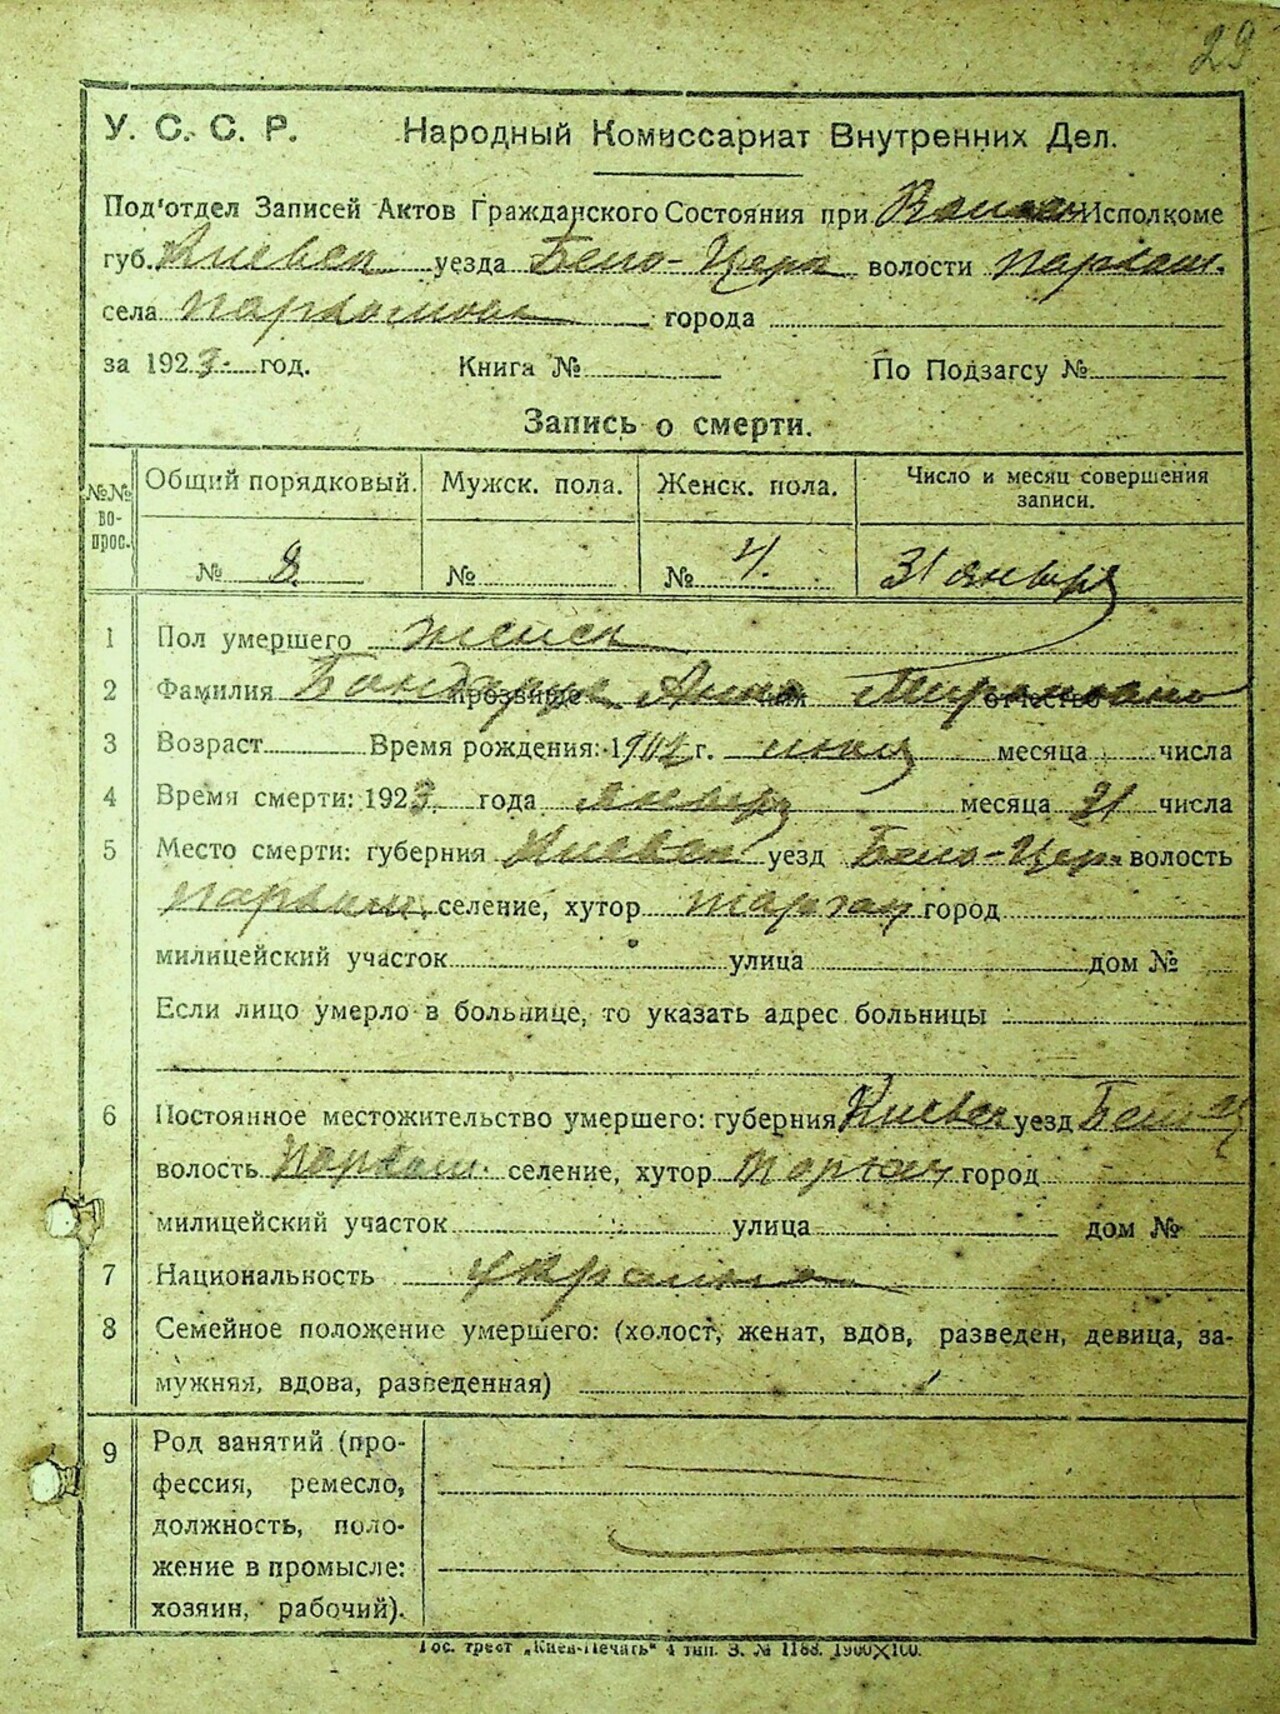 29
У. С. С. Р. Народный Комиссариат Внутренних Дел.
Под'отдел Записей Актов Гражданского Состояния при Исполкоме
губ. Киевск уезда Бело-Церк волости Пархом.
села Пархомовк города
за 1923 год. Книга № По Подзагсу №
Запись о смерти.
№№ во-прос. Общий порядковый. Мужск. пола. Женск. пола. Число и месяц совершения записи.
№ 8. № № 4. 31 января
1 Пол умершего женск
2 Фамилия Бондарук прозвище Анна имя отчество
3 Возраст Время рождения: 19 г. месяца числа
4 Время смерти: 1923 года января месяца 21 числа
5 Место смерти: губерния Киевск уезд Бело-Церк волость
Пархом. селение, хутор город
милицейский участок улица дом №
Если лицо умерло в больнице, то указать адрес больницы
6 Постоянное местожительство умершего: губерния Киевск уезд
волость Пархом. селение, хутор город
милицейский участок улица дом №
7 Национальность украинка
8 Семейное положение умершего: (холост, женат, вдов, разведен, девица, за-
мужняя, вдова, разведенная)
9 Род занятий (про-
фессия, ремесло,
должность, поло-
жение в промысле:
хозяин, рабочий).
Гос. трест „Киев-Печать" 4 тип. З. № 1188. 1900X100.